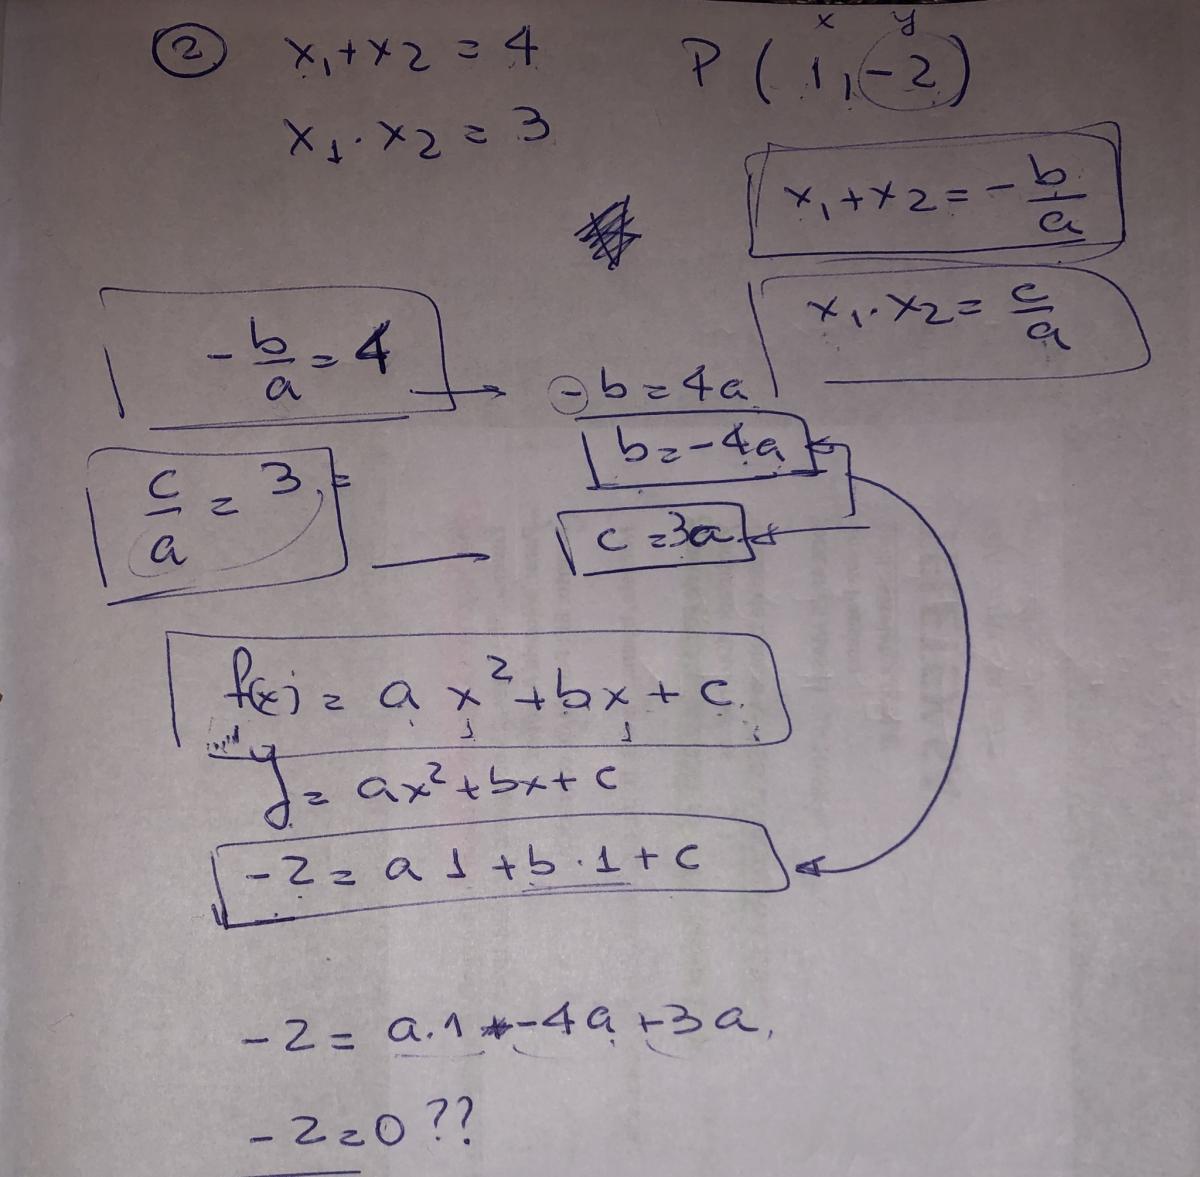 ② x₁+x2 = 4
P(1,-2)
x y
x₁·x2 = 3
x₁+x2 = -b/a
x₁·x2 = c/a
-b/a = 4 → -b=4a
b=-4a
c/a = 3 → c=3a
f(x) = ax²+bx+c
1 1
y = ax²+bx+c
-2 = a 1 + b·1 + c
-2 = a·1 -4a +3a
-2=0 ??